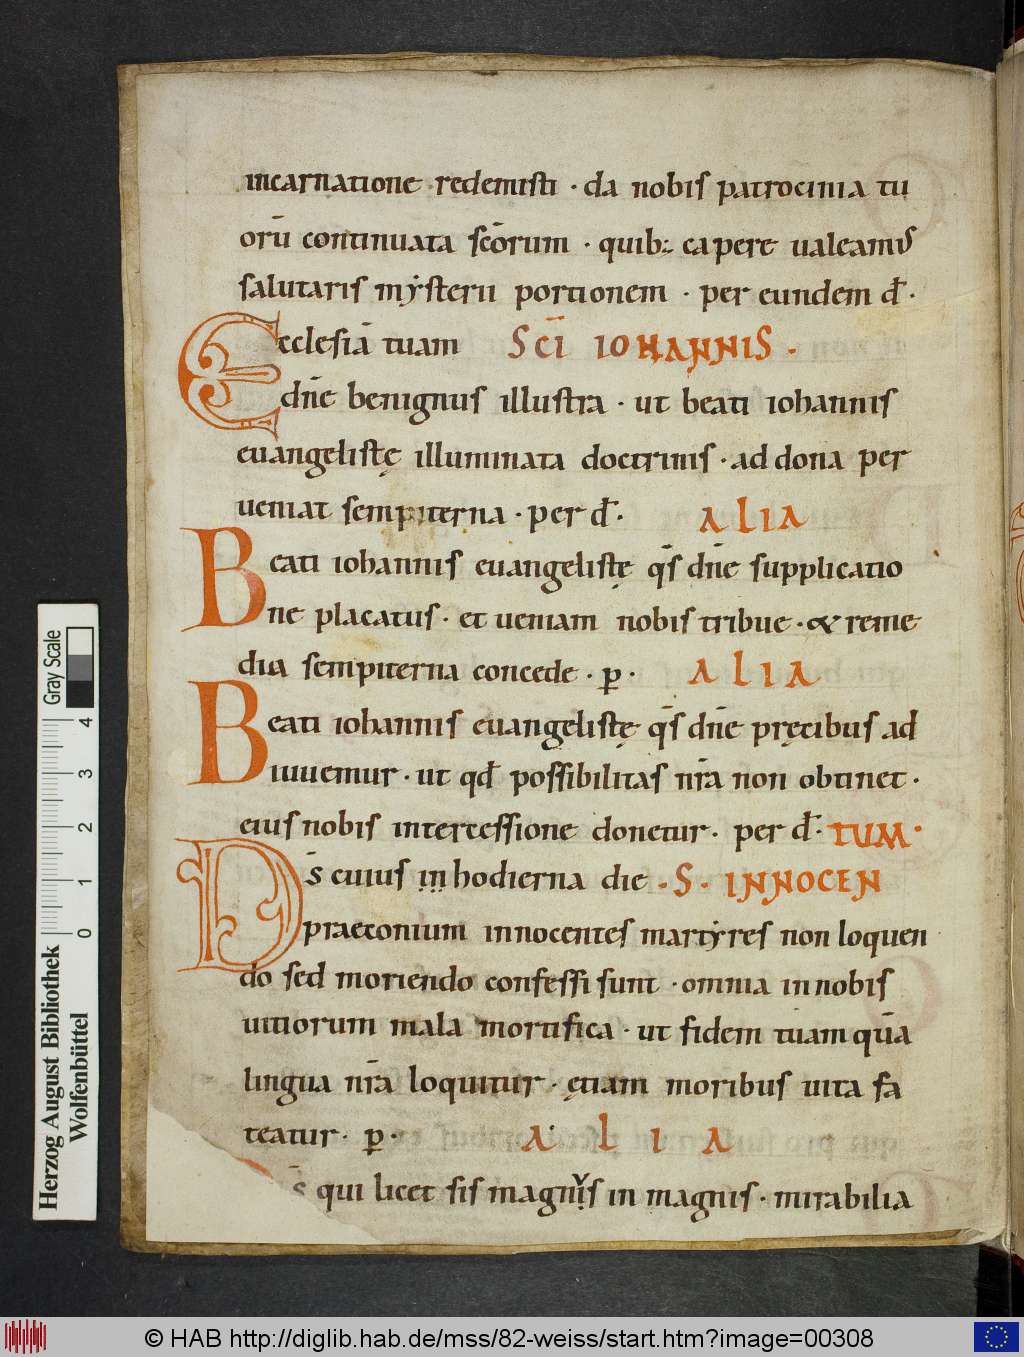 incarnatione redemisti · da nobis patrocinia tu
orū continuata scōrum · quib; capere ualeamus
salutaris mẏsterii portionem · per eundem d̄ ·
Ecclesiā tuam SC̄I IOHANNIS ·
dn̄e benignus illustra · ut beati iohannis
euangelistę illuminata doctrinis · ad dona per
ueniat sempiterna · per d̄ · ALIA
Beati iohannis euangelistę qs̄ dn̄e supplicatio
ne placatus · et ueniam nobis tribue · & reme
dia sempiterna concede · p̄ · ALIA
Beati iohannis euangelistę qs̄ dn̄e pręcibus ad
iuuemur · ut qđ possibilitas nr̄a non obtinet ·
eius nobis intercessione donetur · per d̄ · TUM ·
Ds̄ cuius in hodierna die · S · INNOCEN
praeconium innocentes martẏres non loquen
do sed moriendo confessi sunt · omnia in nobis
uitiorum mala mortifica · ut fidem tuam quā
lingua nr̄a loquitur · ętiam moribus uita fa
teatur · p̄ · ALIA
s̄ qui licet sis magnus in magnis · mirabilia
Herzog August Bibliothek
Wolfenbüttel
0 1 2 3 4
Gray Scale
© HAB http://diglib.hab.de/mss/82-weiss/start.htm?image=00308